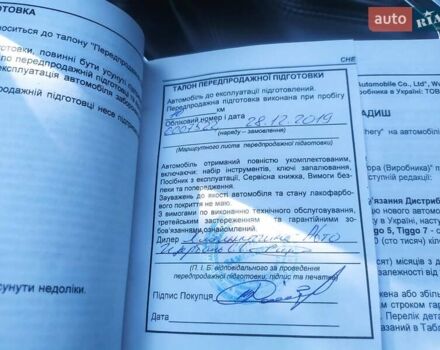 auto
RIA
ГОТОВКА
носиться до талону "Передпродажної
отовки, повинні бути усунуті
ло передпродажній підготовці та
ксплуатація автомобіля заборо
родажній підготовці несе підпри
сунути недоліки.
CHE
ТАЛОН ПЕРЕДПРОДАЖНОЇ ПІДГОТОВКИ
Автомобіль до експлуатації підготовлений.
Передпродажна підготовка виконана при пробігу
Обліковий номер і дата
28.12.2019
(наряду – замовлення)
(Маршрутного листа передпродажної підготовки)
Автомобіль отриманий повністю укомплектованим,
включаючи: набір інструментів, ключі запалювання,
Посібник з експлуатації, Сервісна книжка, Вимоги без-
пеки та попередження.
Зауважень до якості автомобіля та стану лакофарбо-
вого покриття не маю.
З вимогами по виконанню технічного обслуговування,
третейським застереженням та гарантійними зо-
бов'язаннями ознайомлений.
Дилер
(П. І. Б. відповідального за проведення
передпродажної підготовки, підпис та печатка)
Підпис Покупця
Дата
Automobile Co., Ltd", Wu
робника в Україні: ТОВ
АДИШ
hery" на автомобіль
ра (Виробника)" перед
ступній редакції:
'язання Дистриб
ро нового автомобіл
у в Україні, наступн
go 5, Tiggo 7 - с
0 (сто тисяч) кіл
есят) місяців з д
алежності від
жена або збіль
строком гаран
. Перелік дета
азаний в Табл